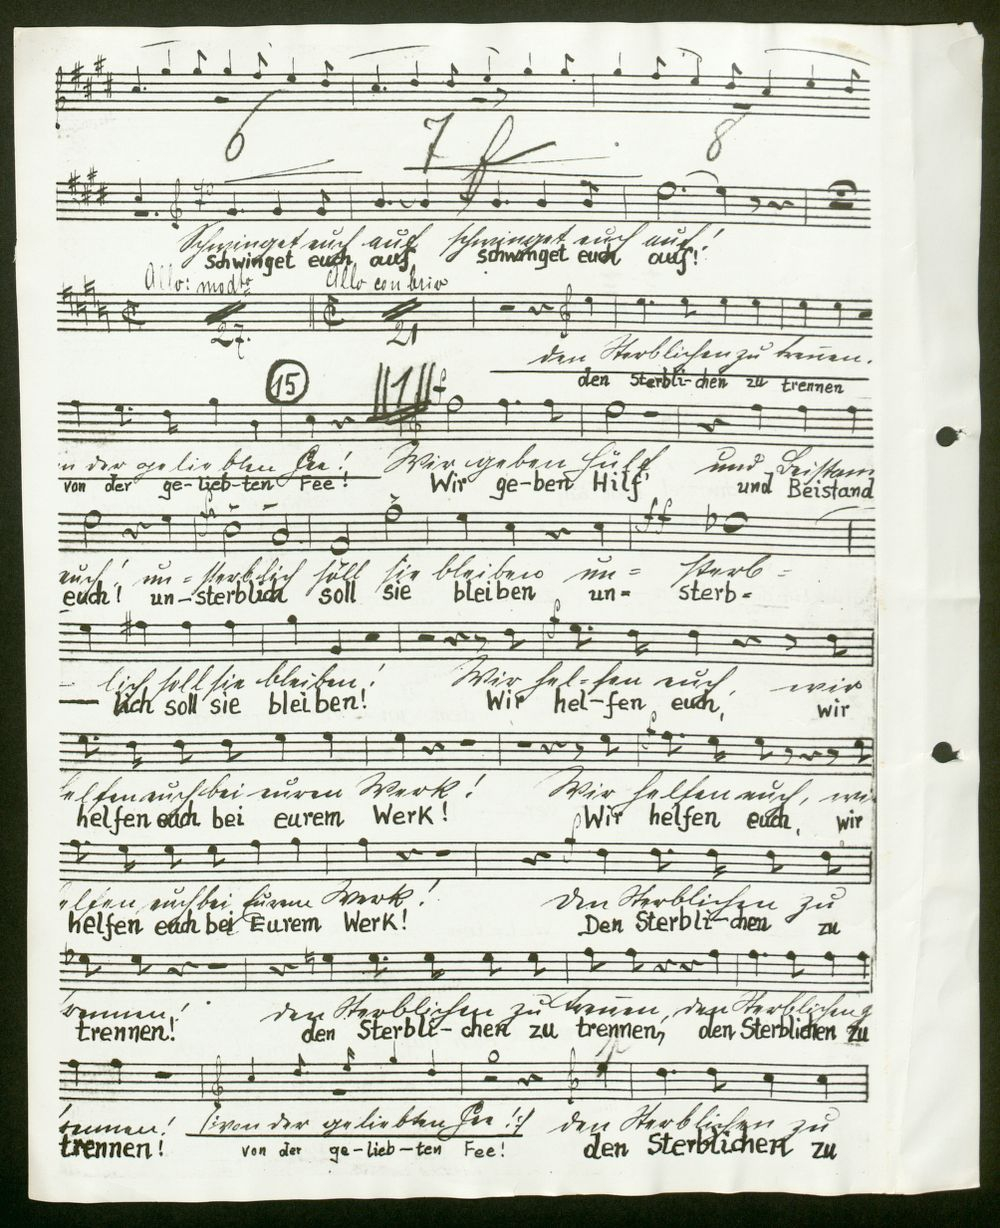 6 7 f 8
Schwinget euch auf schwinget euch auf!
schwinget euch auf schwinget euch auf!
Allo: modto Allo con brio
27. 21
den Sterblichen zu trennen.
den Sterbli-chen zu trennen
15 1 f
von der geliebten Fee! Wir geben Hülf und Beistand
von der ge-lieb-ten Fee! Wir ge-ben Hilf' und Beistand
f ff
euch! un=sterblich soll sie bleiben un= sterb=
euch! un-sterblich soll sie bleiben un= sterb=
f
lich soll sie bleiben! Wir hel=fen euch, wir
lich soll sie bleiben! Wir hel-fen euch, wir
f
helfen euch bei eurem Werk! Wir helfen euch, wir
helfen euch bei eurem Werk! Wir helfen euch, wir
f
elfen euch bei Eurem Werk! Den Sterblichen zu
helfen euch bei Eurem Werk! Den Sterbli-chen zu
trennen! den Sterblichen zu trennen, den Sterblichen z
trennen! den Sterbli-chen zu trennen, den Sterblichen zu
trennen! (:von der geliebten Fee!:) den Sterblichen zu
trennen! von der ge-lieb-ten Fee! den Sterblichen zu